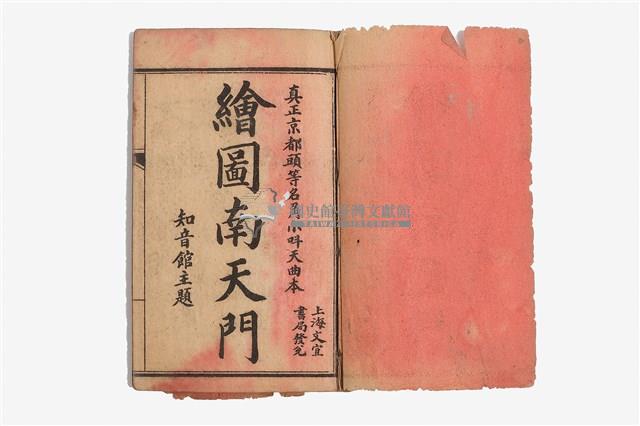 真正京都頭等名角小叫天曲本
上海文宜
書局發兌
繪圖南天門
知音館主題
國史館臺灣文獻館
TAIWAN HISTORICA